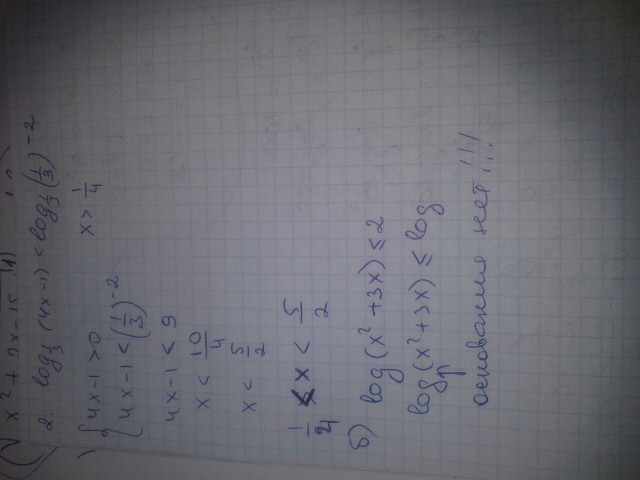 x² + 2x - 15
2. log_{1/3} (4x-1) < log_{1/3} (1/3)^{-2}
{ 4x-1 > 0      x > 1/4
4x-1 < (1/3)^{-2}
4x-1 ≤ 9
x < 10/4
x < 5/2
1/4 < x < 5/2
б) log (x² + 3x) ≤ 2
log (x² + 3x) ≤ log
основания нет!!!